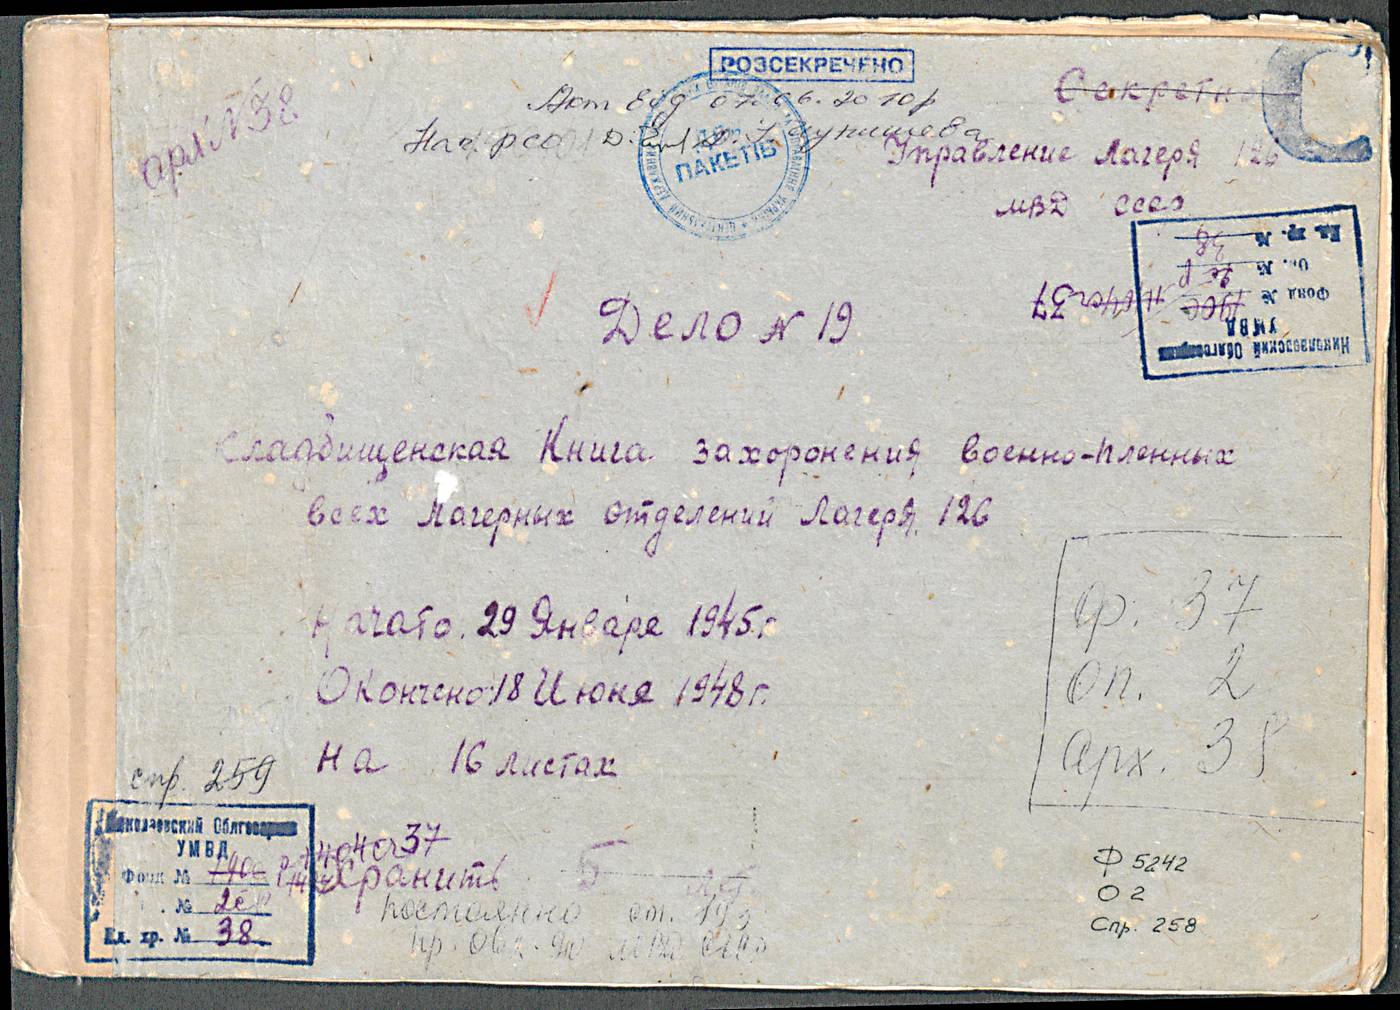 РОЗСЕКРЕЧЕНО
Секретно
С
арх N 38
ПАКЕТІВ
Управление Лагеря 126
МВД СССР
Николаевский Облгосархив
УМВД
Фонд № 1900
Оп. № 2с
Ед. хр. № 38
Дело N 19
Кладбищенская Книга захоронения военно-пленных
всех Лагерных отделений Лагеря 126
Начато. 29 Января 1945 г.
Окончено 18 Июня 1948 г.
На 16 листах
ф. 37
оп. 2
арх. 38
спр. 259
Николаевский Облгосархив
УМВД
Фонд № 1900
№ 2с
Ед. хр. № 38
Хранить
постоянно ст.
Ф 5242
О 2
Спр. 258